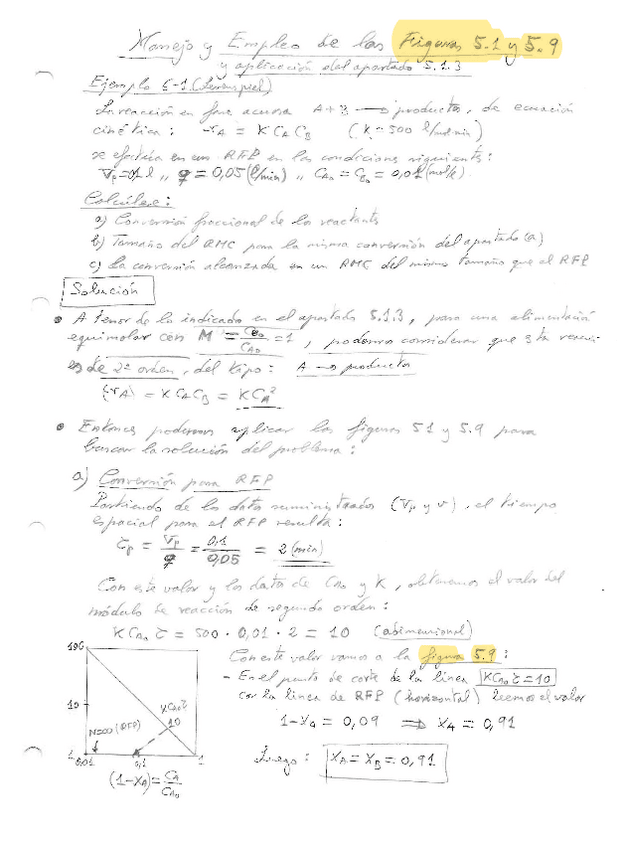 Manejo y Empleo de las Figuras 5.1 y 5.9
y aplicación del apartado 5.1.3
Ejemplo 5-1 (Levenspiel)
La reacción en fase acuosa A + B → productos, de ecuación
cinética: -rA = K CA CB (K = 500 l/mol min)
se efectúa en un RFP en las condiciones siguientes:
Vp = 0,1 l ,, q = 0,05 (l/min) ,, CA0 = CB0 = 0,01 (mol/l).
Calcúlese:
a) Conversión fraccional de los reactantes
b) Tamaño del RMC para la misma conversión del apartado (a)
c) La conversión alcanzada en un RMC del mismo tamaño que el RFP
Solución
• A tenor de lo indicado en el apartado 5.1.3, para una alimentación
equimolar con M = CB0/CA0 = 1, podemos considerar que esta reacci-
es de 2º orden, del tipo: A → productos
(-rA) = K CA CB = K CA²
• Entonces podemos aplicar las figuras 5.1 y 5.9 para
buscar la solución del problema:
a) Conversión para RFP
Partiendo de los datos suministrados (Vp y v), el tiempo
espacial para el RFP resulta:
τp = Vp/q = 0,1/0,05 = 2 (min)
Con este valor y los datos de CA0 y K, obtenemos el valor del
módulo de reacción de segundo orden:
K CA0 τ = 500 · 0,01 · 2 = 10 (adimensional)
Con este valor vamos a la figura 5.9:
- En el punto de corte de la línea KCA0 τ = 10
con la línea de RFP (horizontal) leemos el valor
1-XA = 0,09 ⇒ XA = 0,91
Luego: XA = XB = 0,91
100
10
1
KCA0τ
10
N=∞ (RFP)
0,01 0,1 1
(1-XA) = CA/CA0